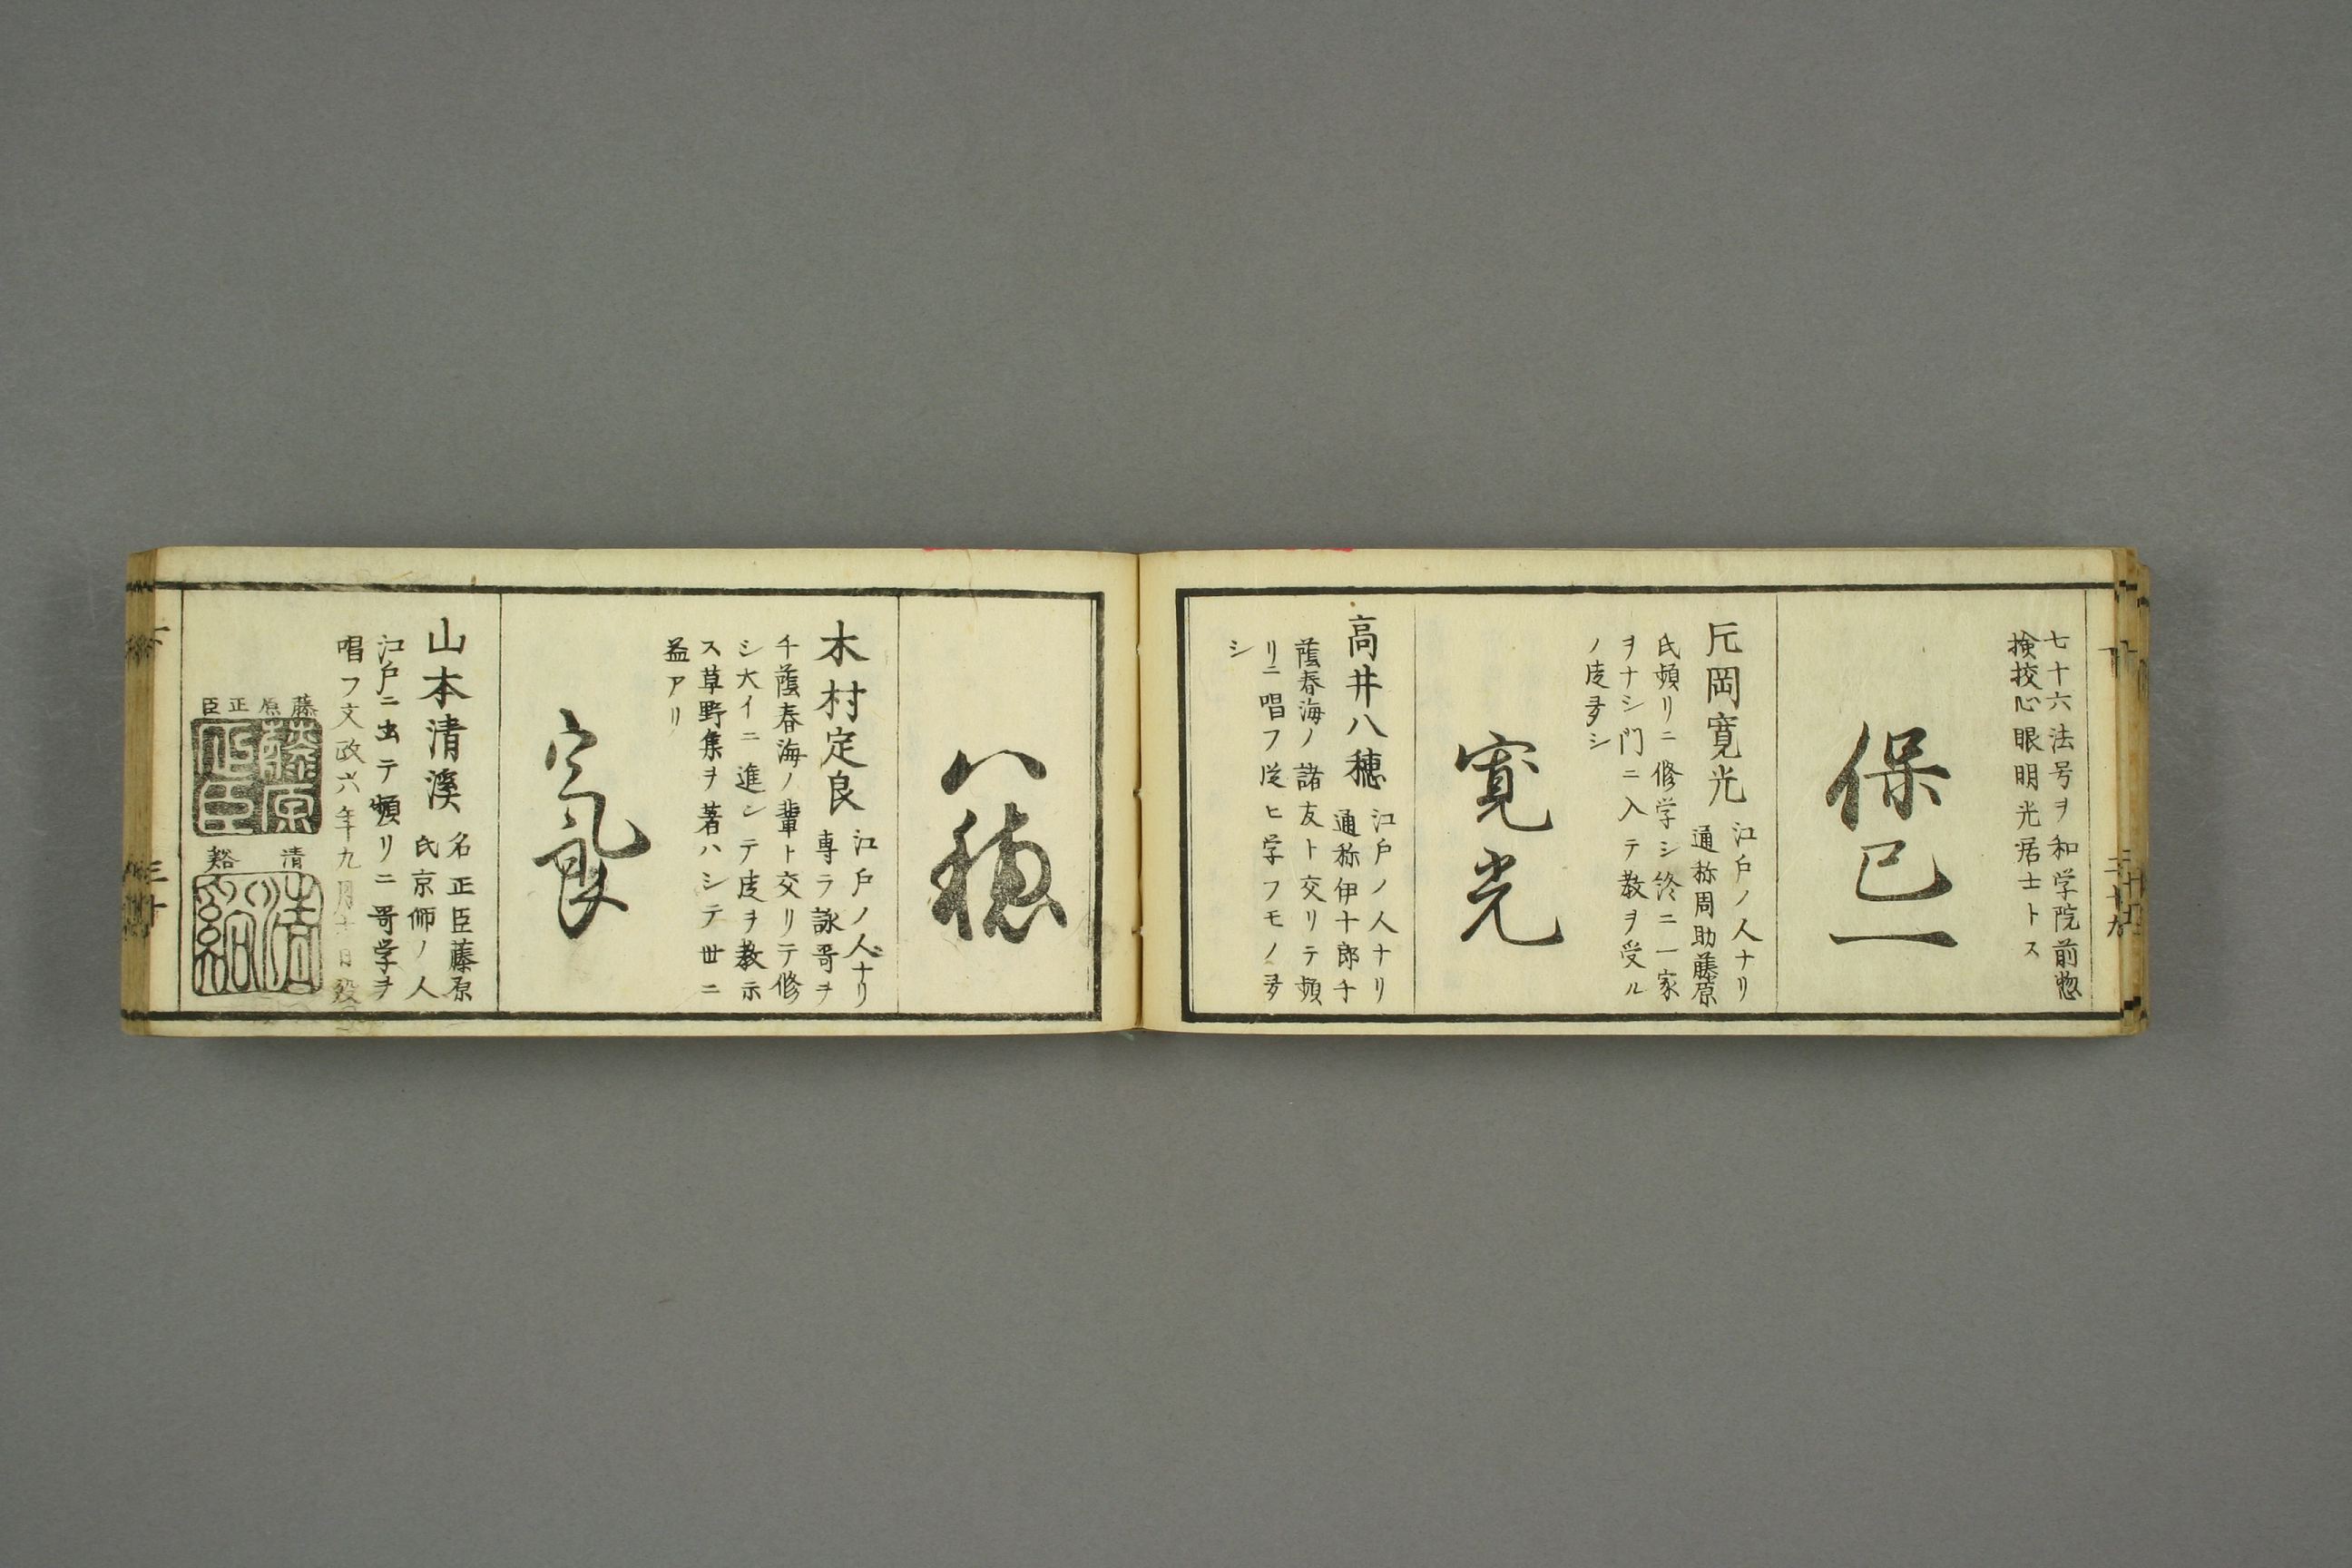 七十六法号ヲ和学院前惣
検校心眼明光居士トス
保己一
元岡寛光
江戸ノ人ナリ
通称周助藤原
氏頻リニ修学シ終ニ一家
ヲナシ門ニ入テ教ヲ受ル
ノ徒多シ
寛光
高井八穂
江戸ノ人ナリ
通称伊十郎千
蔭春海ノ諸友ト交リテ頻
リニ唱フ従ヒ学フモノ多
シ
八穂
木村定良
江戸ノ人ナリ
専ラ詠哥ヲ
千蔭春海ノ輩ト交リテ修
シ大イニ進シテ徒ヲ教示
ス草野集ヲ著ハシテ世ニ
益アリ
定良
山本清溪
名正臣藤原
氏京師ノ人
江戸ニ出テ頻リニ哥学ヲ
唱フ文政六年九月十日歿
藤原正臣
藤原正臣
清谿
清谿
三十